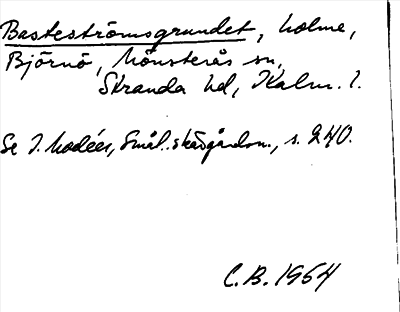 Basteströmsgrundet, holme,
Björnö, Mönsterås sn,
Stranda hd, Kalm. l.
Se I. Modéer, Smål. skärgårdsn., s. 240.
C.B. 1964